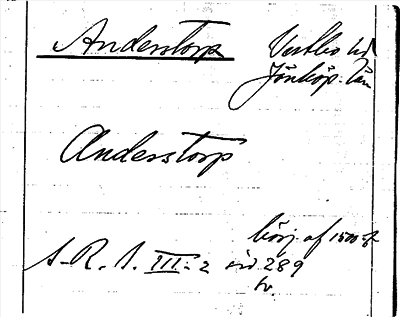 Anderstorp Vestbo hd
Jönköp. län
Anderstorp
börj. af 1500-t
S. R. A. III: 2 sid 289
tr.